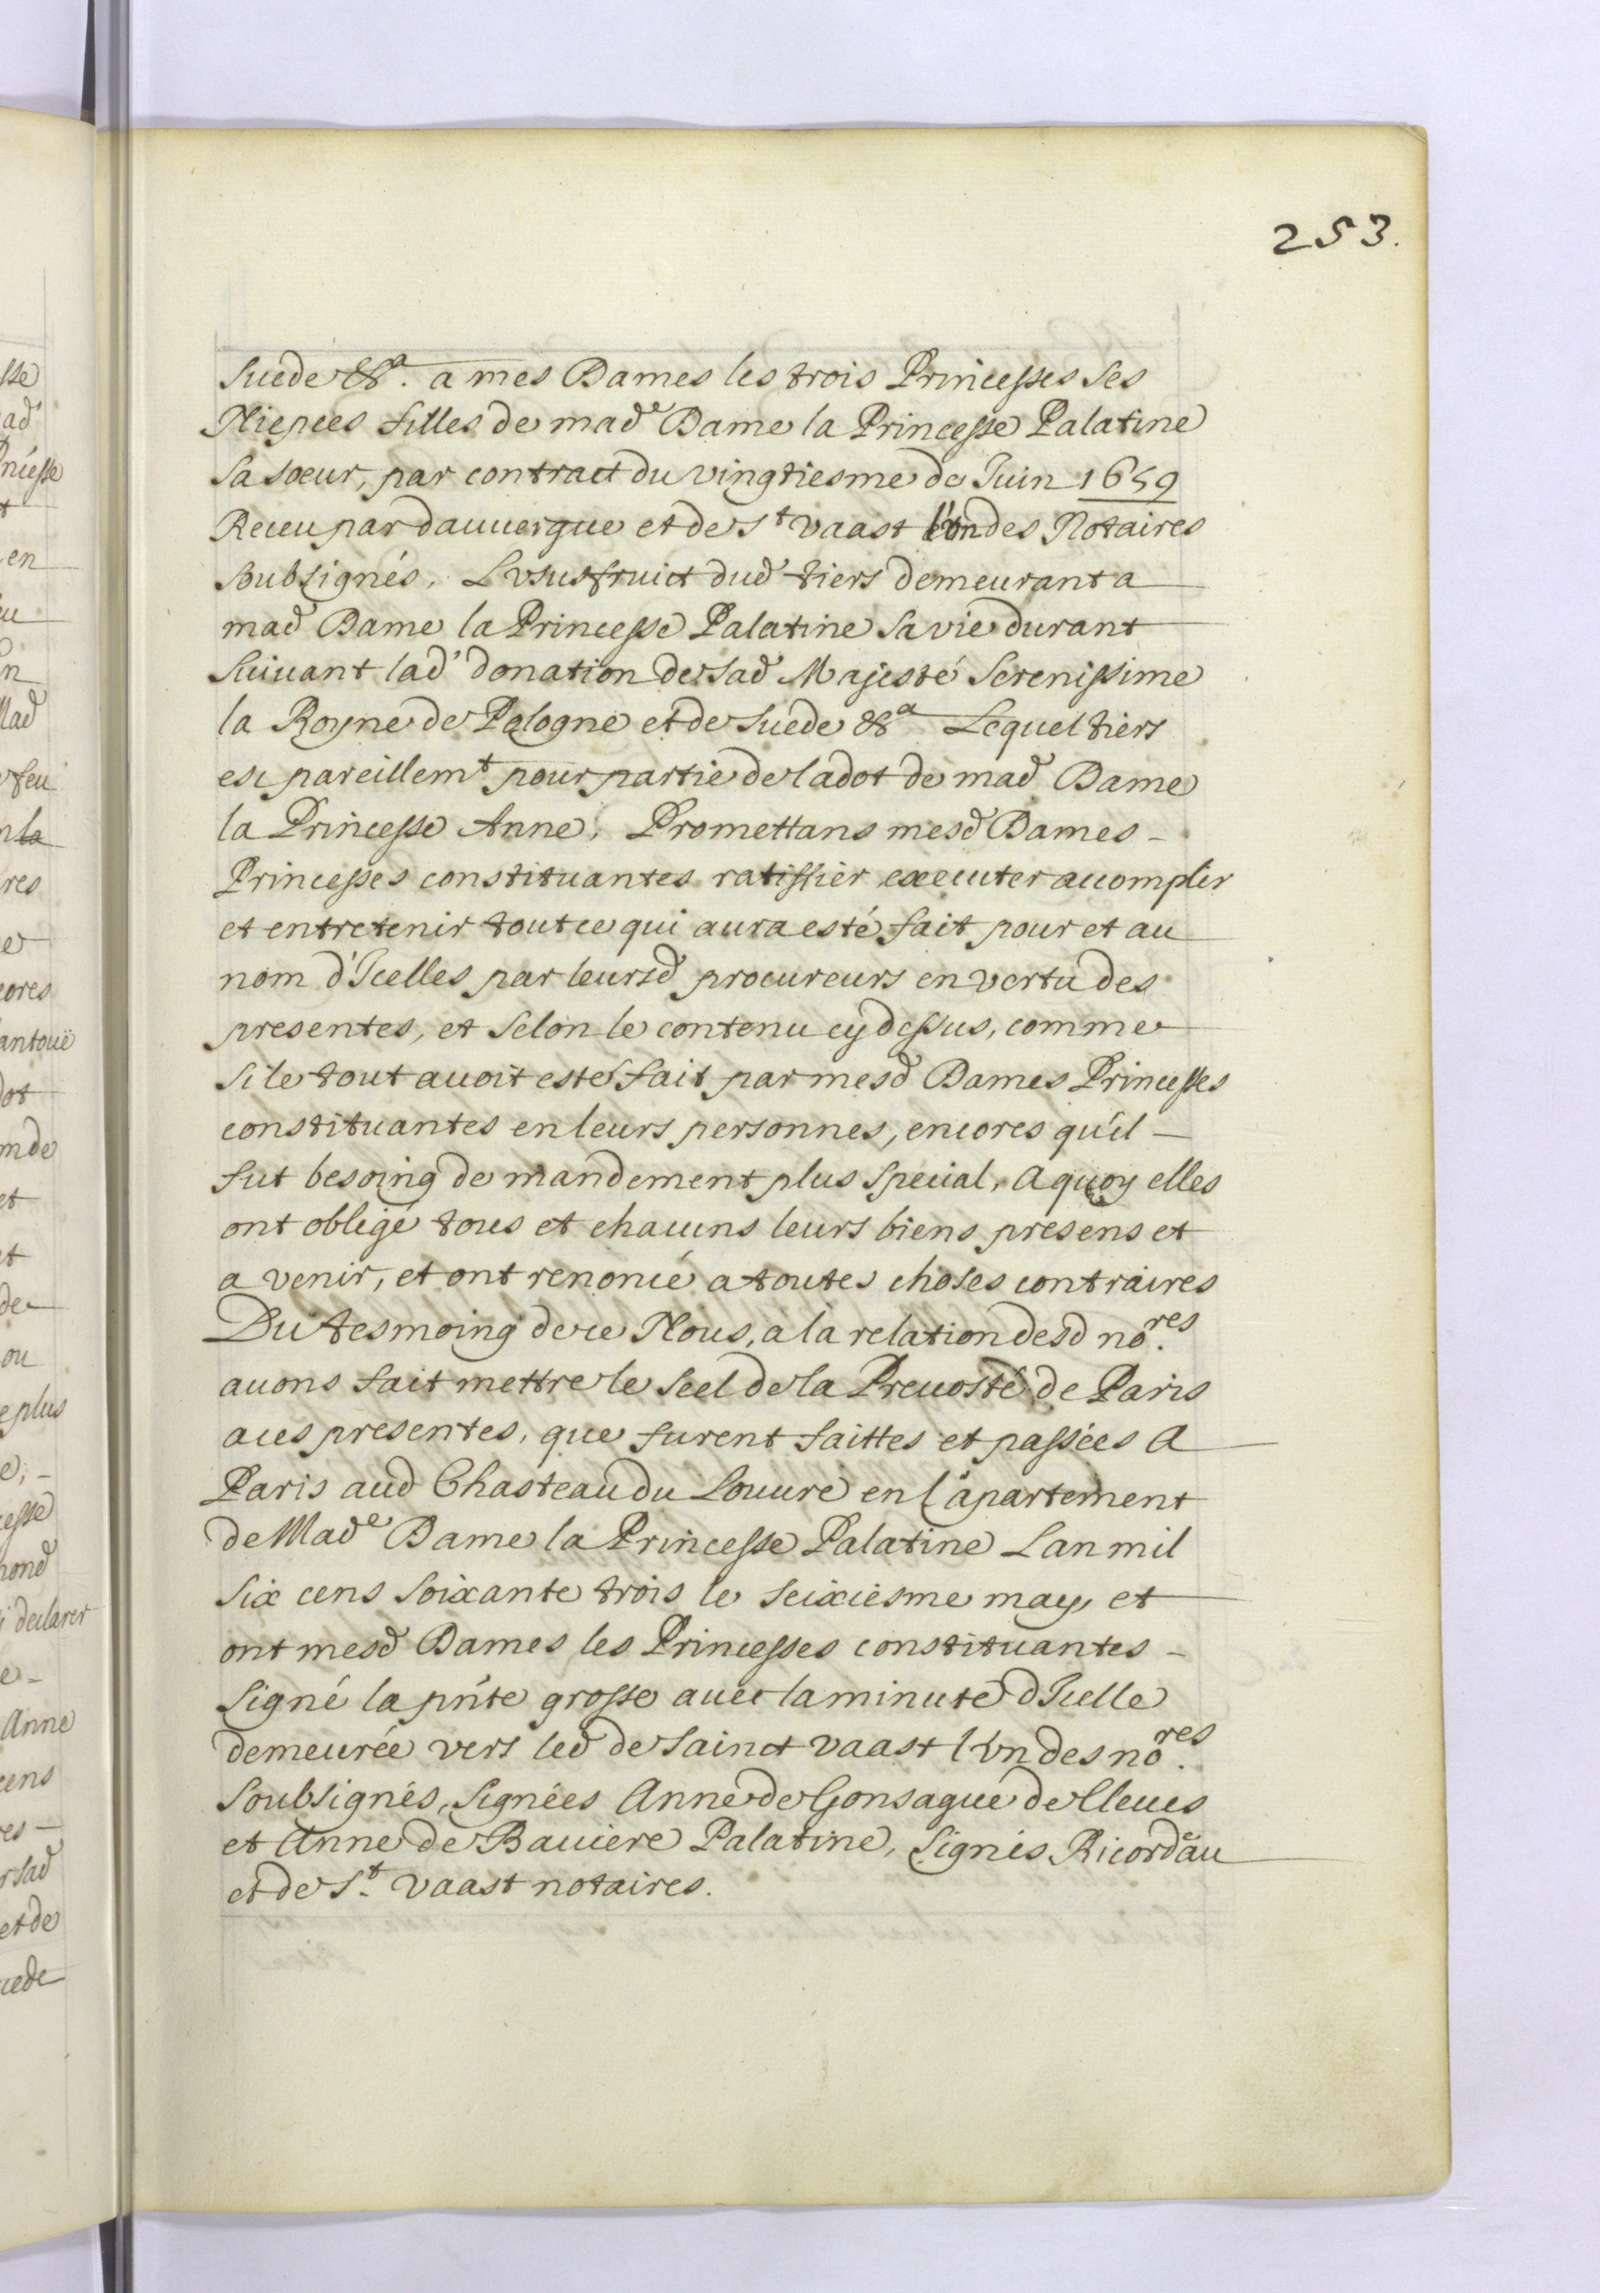 253.
Suede &a. a mes Dames les trois Princesses ses
Niepces filles de made Dame la Princesse Palatine
sa sœur, par contract du vingtiesme de Juin 1659
Receu par dauuergue et de St vaast l'un des Notaires
soubsignés, Lvsusfruict dud tiers demeurant a
mad Dame la Princesse Palatine sa vie durant
suiuant lad' donation de sad Majesté Serenissime
la Royne de Pologne et de Suede &a Lequel tiers
est pareillemt pour partie de ladot de mad Dame
la Princesse Anne, Promettans mesd Dames -
Princesses constituantes ratiffier executer accomplir
et entretenir tout ce qui aura esté fait pour et au
nom d'Icelles par leursd procureurs en vertu des
presentes, et selon le contenu cy dessus, comme
si le tout auoit esté fait par mesd Dames Princesses
constituantes en leurs personnes, encores qu'il -
fut besoing de mandement plus special, a quoy elles
ont obligé tous et chacuns leurs biens presens et
a venir, et ont renoncé a toutes choses contraires
Du tesmoing de ce Nous, a la relation desd nores.
auons fait mettre le seel de la Preuosté de Paris
a ces presentes, que furent faittes et passées a
Paris aud Chasteau du Louure en l'apartement
de Made Dame la Princesse Palatine Lan mil
six cens soixante trois le seixiesme may, et
ont mesd Dames les Princesses constituantes -
signé la pn'te grosse auec la minute d'Icelle
demeurée vers led de Sainct vaast l'vn des nores.
soubsignés, signées Anne de Gonsague de Cleues
et Anne de Bauiere Palatine, signés Ricordeau
et de St. vaast notaires.